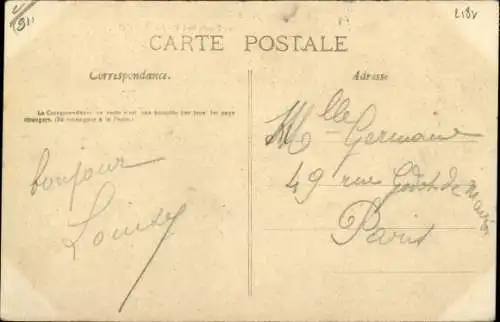 CARTE POSTALE
Correspondance.
Adresse
La Correspondance au recto n'est pas acceptée par tous les pays
étrangers. (Se renseigner à la Poste.)
bonjour
Louise
Mlle Germaine
49 rue Godot de Mauroy
Paris